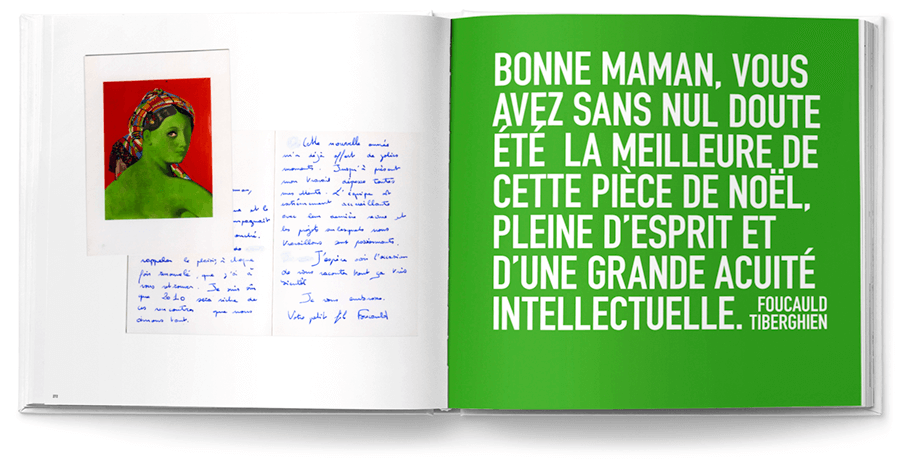 et le
rappeler le plaisir, à chaque
fois renouvelé, que j'ai à
vous retrouver. Je suis sûr
que 2010 sera riche de
ces rencontres que nous
aimons tant.
Cette nouvelle année
m'a déjà offert de jolies
moments. Jusqu'à présent
mon travail dépasse toutes
mes attentes. L'équipe est
entièrement accueillante
avec leur dernière venue et
les projets sur lesquels nous
travaillons sont passionnants.
J'espère avoir l'occasion
de vous raconter tout ça très
bientôt
Je vous embrasse.
Votre petit fils Foucauld
BONNE MAMAN, VOUS
AVEZ SANS NUL DOUTE
ÉTÉ LA MEILLEURE DE
CETTE PIÈCE DE NOËL,
PLEINE D'ESPRIT ET
D'UNE GRANDE ACUITÉ
INTELLECTUELLE.
FOUCAULD
TIBERGHIEN